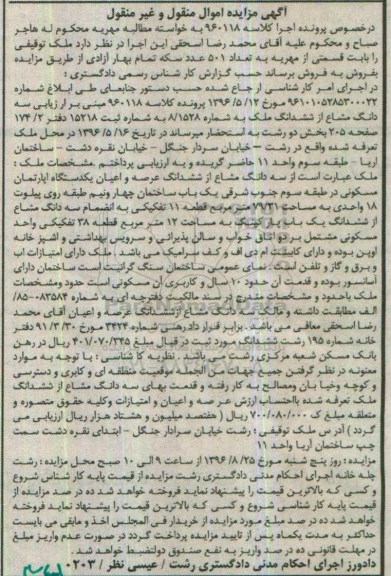 آگهی مزایده اموال منقول و غیر منقول
درخصوص پرونده اجرا کلاسه ۹۶۰۱۱۸ به خواسته مطالبه مهریه محکوم له هاجر
صباح و محکوم علیه آقای محمد رضا اسحقی این اجرا در نظر دارد ملک توقیفی
را بابت قسمتی از مهریه به تعداد ۵۰۱ عدد سکه تمام بهار آزادی از طریق مزایده
بفروش به فروش برساند حسب گزارش کار شناس رسمی دادگستری :
در اجرای امر کار شناسی ار جاع شده حسب دستور جنابعالی طی ابلاغ شماره
۹۶۱۰۱۰۵۲۸۵۳۰۰۰۲۲ مورخ ۱۲/ ۱۳۹۶/۵ پرونده کلاسه ۹۶۰۱۱۸ مبنی بر ار زیابی سه
دانگ مشاع از ششدانگ ملک به شماره ۸/۱۵۲۸ به شماره ثبت ۱۵۲۱۸ دفتر ۱۷۴/۲
صفحه ۲۰۵ بخش دو رشت به استحضار میرساند در تاریخ ۱۳۹۶/۵/۱۶ در محل ملک
تعرفه شده واقع در رشت – خیابان سردار جنگل – خیابان نقره دشت – ساختمان
آریا – طبقه سوم واحد ۱۱ حاضر گردیده و به ارزیابی پرداختم. مشخصات ملک :
ملک عبارت است از سه دانگ مشاع از ششدانگ عرصه و اعیان یکدستگاه آپارتمان
مسکونی در طبقه سوم جنوب شرقی یک باب ساختمان چهار ونیم طبقه روی پیلوت
۱۸ واحدی به مساحت ۷۹/۳۱ متر مربع قطعه ۱۱ تفکیکی به انضمام سه دانگ مشاع
از ششدانگ یک باب پار کینگ به مساحت ۱۲ متر مربع قطعه ۳۸ تفکیکی واحد
مسکونی مشتمل بر دو اتاق خواب و سالن پذیرائی و سرویس بهداشتی و آشپز خانه
اوپن بوده و دارای کابینت ام دی اف و کف سرامیک می باشد . ملک دارای امتیازات آب
و برق و گاز و تلفن است. نمای عمومی ساختمان سنگ گرانیت است ساختمان دارای
آسانسور بوده و قدمت آن حدود ۱۰ سال و کاربری آن مسکونی است حدود ومشخصات
ملک باحدود و مشخصات مندرج در سند مالکیت دفترچه ای به شماره ۰۸۳۵۸۴-۸۵/
الف مطابقت داشته و مالکیت سه دانگ مشاع از ششدانگ عرصه و اعیان آقای محمد
رضا اسحقی معافی می باشد. برابر قرار داد رهنی شماره ۳۴۲۴ مورخ ۹۱/۳/۳۰ دفتر
خانه شماره ۱۹۵ رشت ششدانگ مورد ثبت در قبال مبلغ ۴۰۱/۰۷۰/۳۴۵ ریال در رهن
بانک مسکن شعبه مرکزی رشت می باشد . نظریه کا شناسی : با توجه به موارد
معنونه در نظر گرفتن جمیع جهات من الجمله موقعیت منطقه ای و کاربری و دسترسی
و کوچه وخیا بان ومصالح به کار رفته و قدمت بهای سه دانگ مشاع از ششدانگ
ملک تعرفه شده بااحتساب ارزش عر صه و اعیان و امتیازات وکلیه حقوق متصوره و
متعلقه مبلغ ک ۷۰۰/۰۸۰/۰۰۰ ریال ( هفتصد میلیون و هشتاد هزار ریال ارزیابی می
گردد ) آدر س ملک توقیفی : رشت خیابان سرادار جنگل – ابتدای نقره دشت سمت
چپ ساختمان آریا واحد ۱۱
مزایده : روز پنج شنبه مورخ ۱۳۹۶/۸/۲۵ از ساعت ۹ الی ۱۰ صبح محل مزایده : رشت
جله خانه اجرای احکام مدنی دادگستری رشت مزایده از قیمت پایه کار شناس شروع
و کسی که بالاترین قیمت را پیشنهاد نماید فروخته خواهد شد ده در صد مزایده از
قیمت پایه کار شناسی شروع و کسی که بالاترین قیمت را پیشنهاد نماید فروخته
خواهد شد ده در صد مبلغ مورد مزایده از خریدار فی المجلس اخذ و مابقی می بایست
حداکثر به مدت یکماه پس از تایید مزایده پرداخت گردد در صورت عدم واریز مبلغ
در مهلت قانونی ده در صد واریز به نفع صندوق دولتضبط خواهد شد .
دادورز اجرای احکام مدنی دادگستری رشت / عیسی نظر / ۰۲۰۳